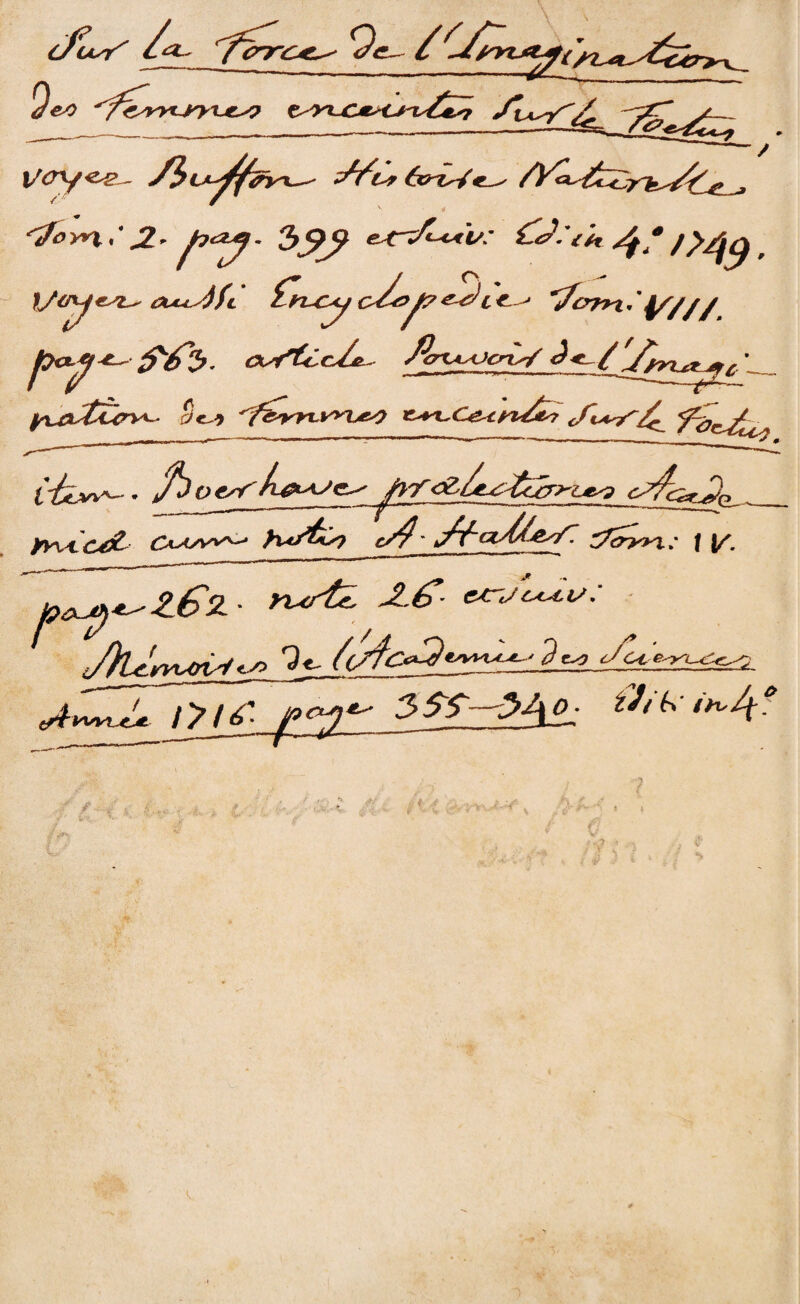 Sur La Force De L'Imagination
Des Femmes enceintes Sur le Foetus.
voyez Buffon Histoire Naturelle
Tom: 2. pag. 399 et Suiv: Ed: in 4.° 1749.
Voyez aussi Encyclopedie Tom: VIII.
page 563. article Pouvoir de L'Imagi-
nation Des Femmes enceintes Sur le Foetus.
item. Boerhaave prælectiones Acade-
micæ cum notis A. Haller. Tom: IV.
page 262. note 26. et Suiv:
Memoires De L'Academie Des Sciences
Année 1715. page 340. Edit: in 4.°